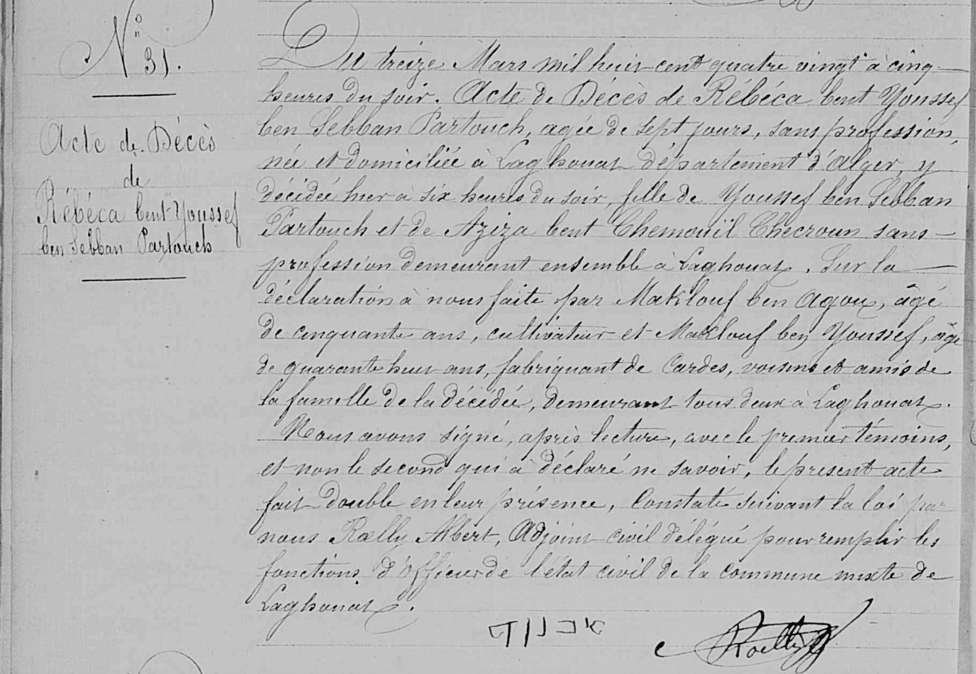 N° 31.
Acte de Décès
de
Rébéca bent Youssef
ben Sebban Partouch
Du treize Mars mil huit cent quatre vingt à cinq
heures du soir. Acte de Décès de Rébéca bent Youssef
ben Sebban Partouch, agée de sept jours, sans profession,
née et domiciliée à Laghouat département d'Alger, y
décédée hier à six heures du soir, fille de Youssef ben Sebban
Partouch et de Aziza bent Chemouïl Checroun sans
profession demeurant ensemble à Laghouat. Sur la
déclaration à nous faite par Maklouf ben Agou, âgé
de cinquante ans, cultivateur et Maklouf ben Youssef, âgé
de quarante huit ans, fabriquant de Cardes, voisins et amis de
la famille de la décédée, demeurant tous deux à Laghouat.
Nous avons signé, après lecture, avec le premier témoins,
et non le second qui a déclaré ne savoir, le present acte
fait double en leur présence, Constaté suivant la loi par
nous Roelly Albert, Adjoint civil délégué pour remplir les
fonctions d'officier de l'état civil de la commune mixte de
Laghouat.
Roelly